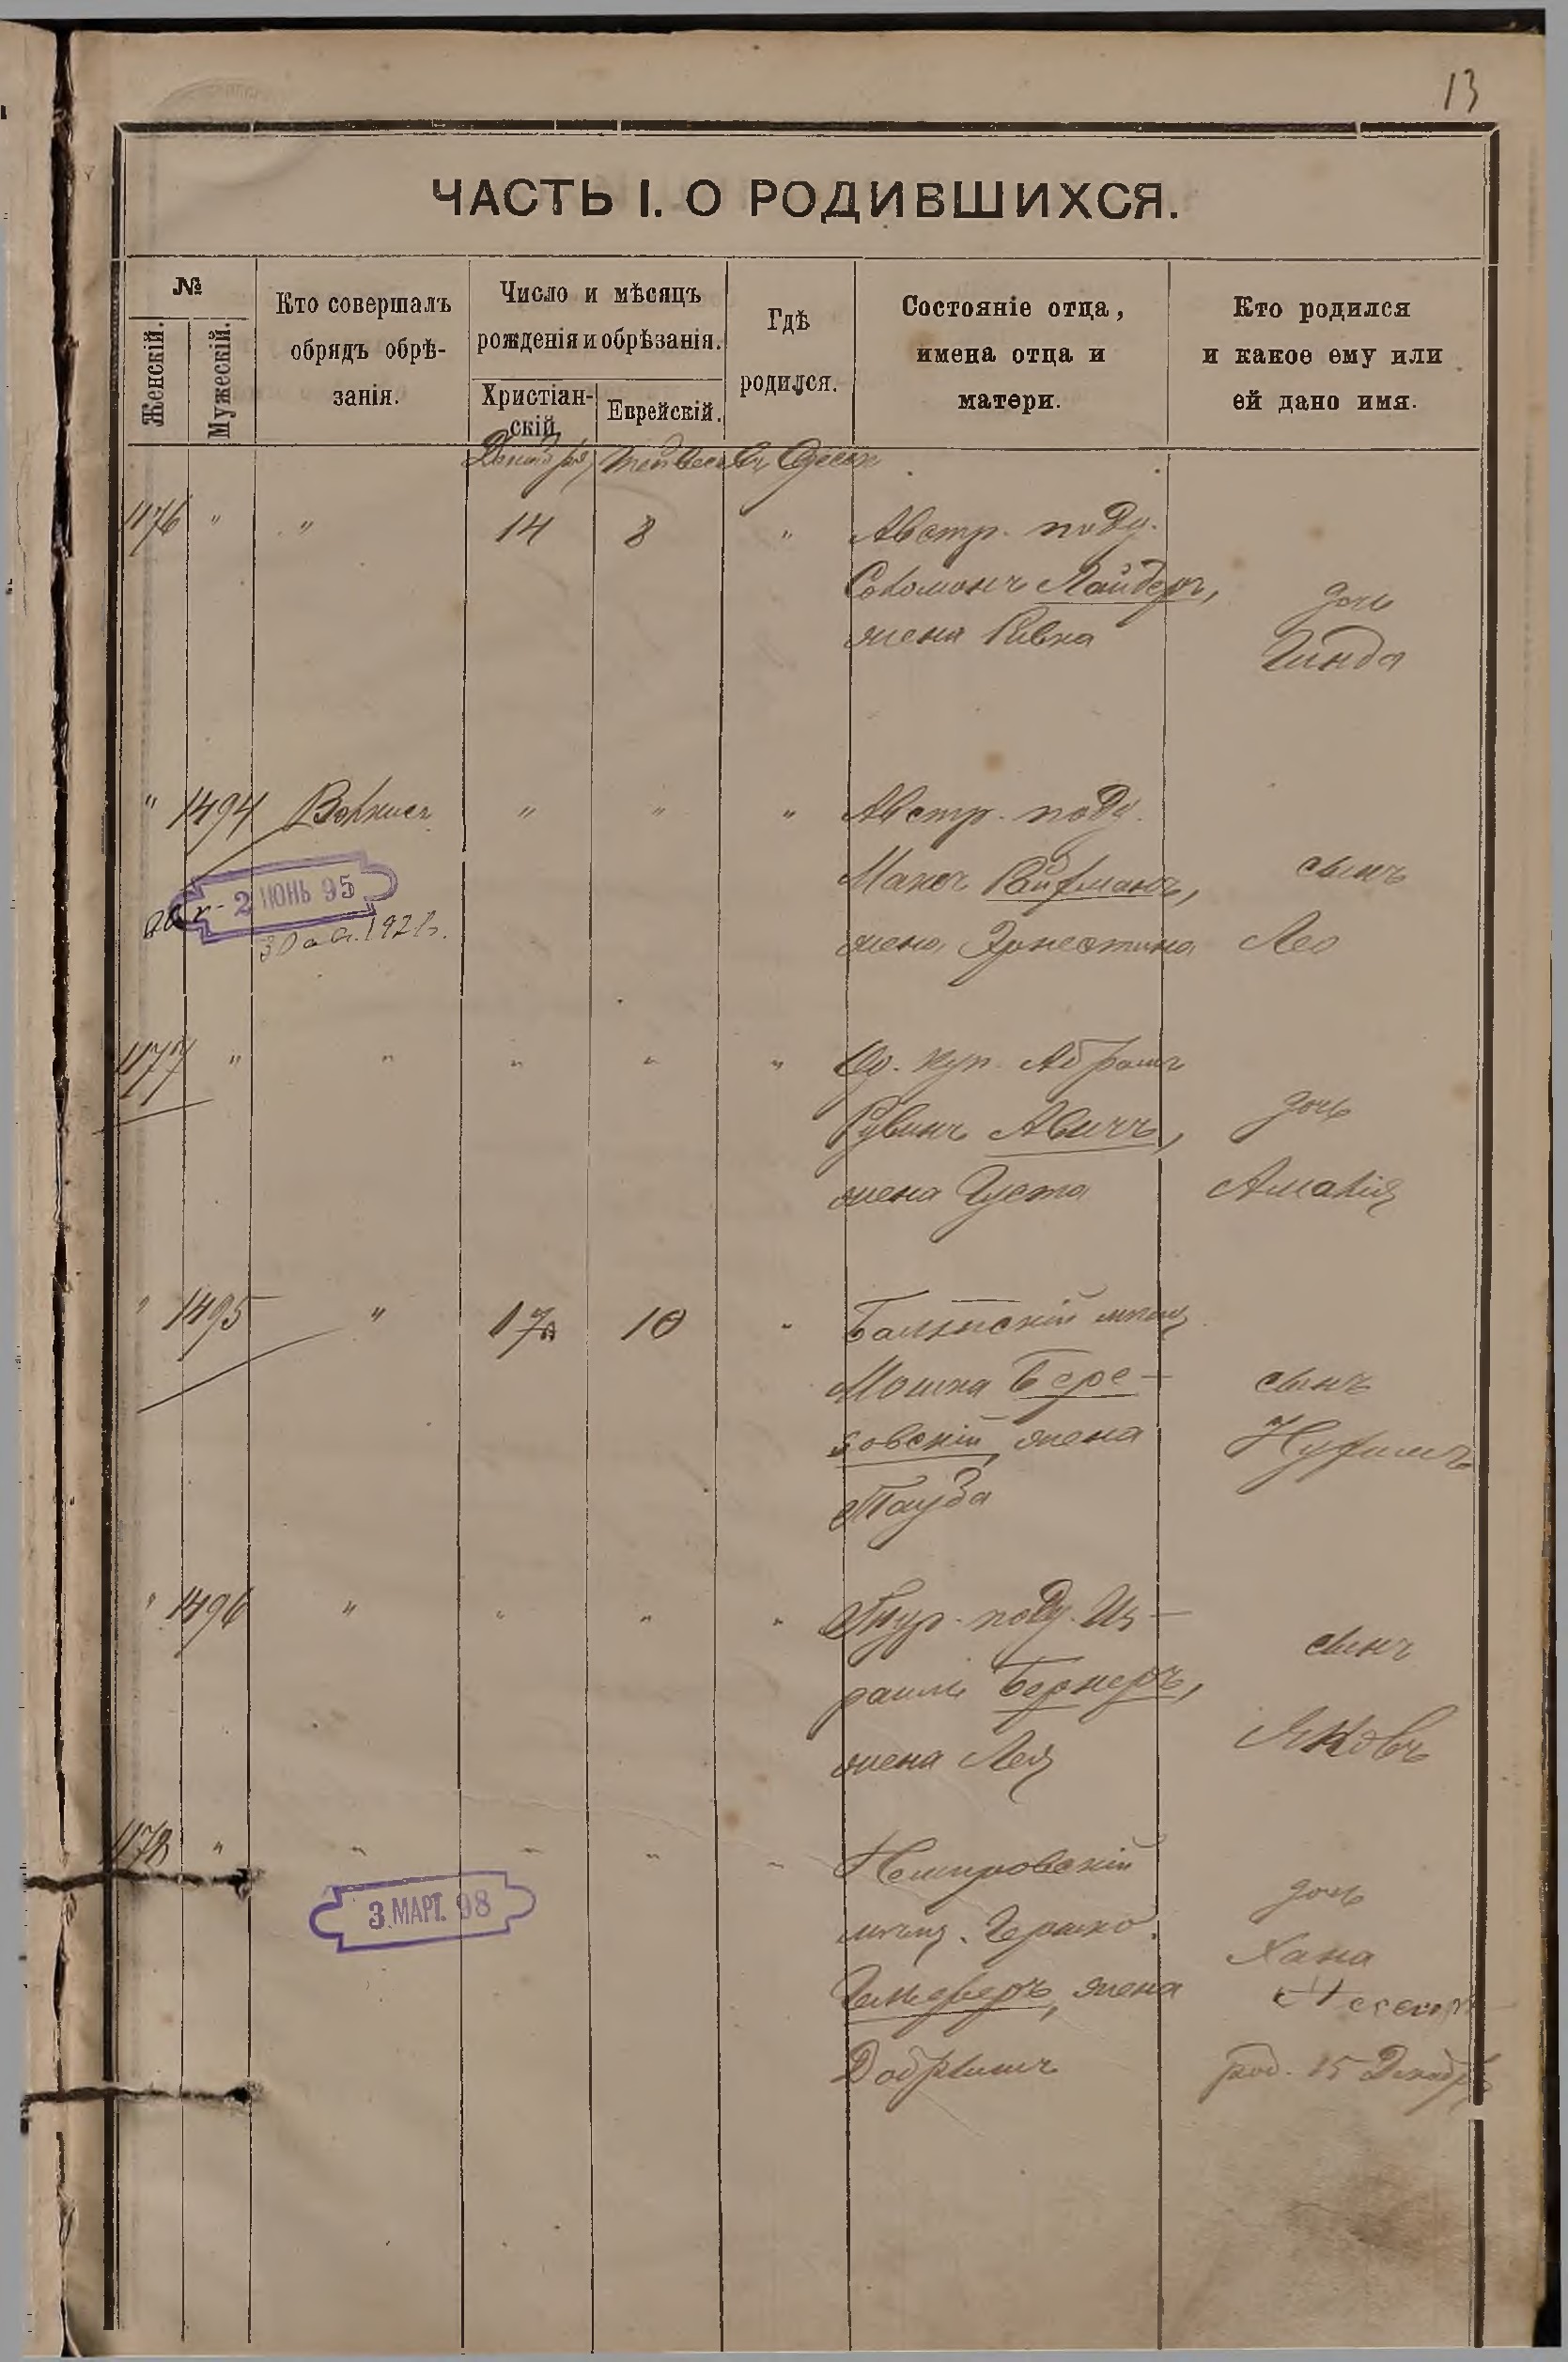 13
ЧАСТЬ I. О РОДИВШИХСЯ.
№
Женскій.
Мужескій.
Кто совершалъ
обрядъ обрѣ-
занія.
Число и мѣсяцъ
рожденія и обрѣзанія.
Христіан-
скій.
Еврейскій.
Гдѣ
родился.
Состояніе отца,
имена отца и
матери.
Кто родился
и какое ему или
ей дано имя.
Декабря Тейвесъ Въ Одессѣ
1176 " " 14 8 " Австр. подд.
Соломонъ Лайдеръ,
жена Ривка
дочь
Гинда
" 1494 " " " Австр. подд.
Максъ Райфманъ,
жена Эрнестина
сынъ
Лео
2 ІЮНЬ 95
1177 " " " " " Од. куп. Абрамъ
Рувинъ
жена Густа
дочь
Амалія
" 1495 " 17 10 " Балтскій мѣщ.
Мошка Бере-
зовскій жена
Тауба
сынъ
" 1496 " " " " Тур. подд. Из-
раиль Бернеръ,
жена Лея
сынъ
Яковъ
1178 " " " " " Немировскій
мѣщ. Гершко
жена
дочь
Хана
род. 15 Декабря
3 МАРТ. 98